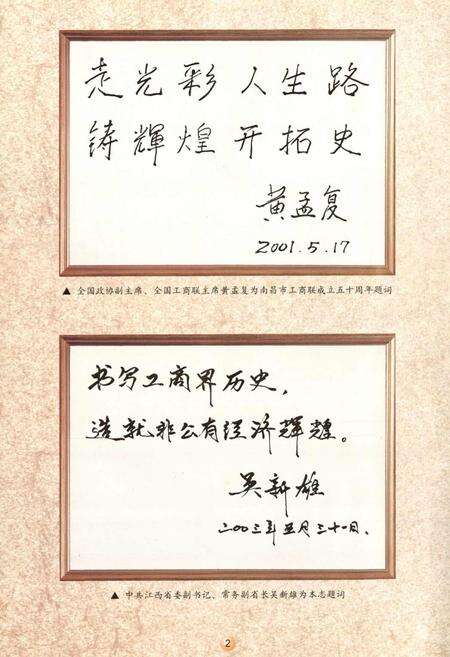 走光彩人生路
铸輝煌开拓史
黄孟复
2001.5.17
▲ 全国政协副主席、全国工商联主席黄孟复为南昌市工商联成立五十周年题词
书写工商界历史,
造就非公有经济辉煌。
吴新雄
二00三年五月三十一日.
▲ 中共江西省委副书记、常务副省长吴新雄为本志题词
2